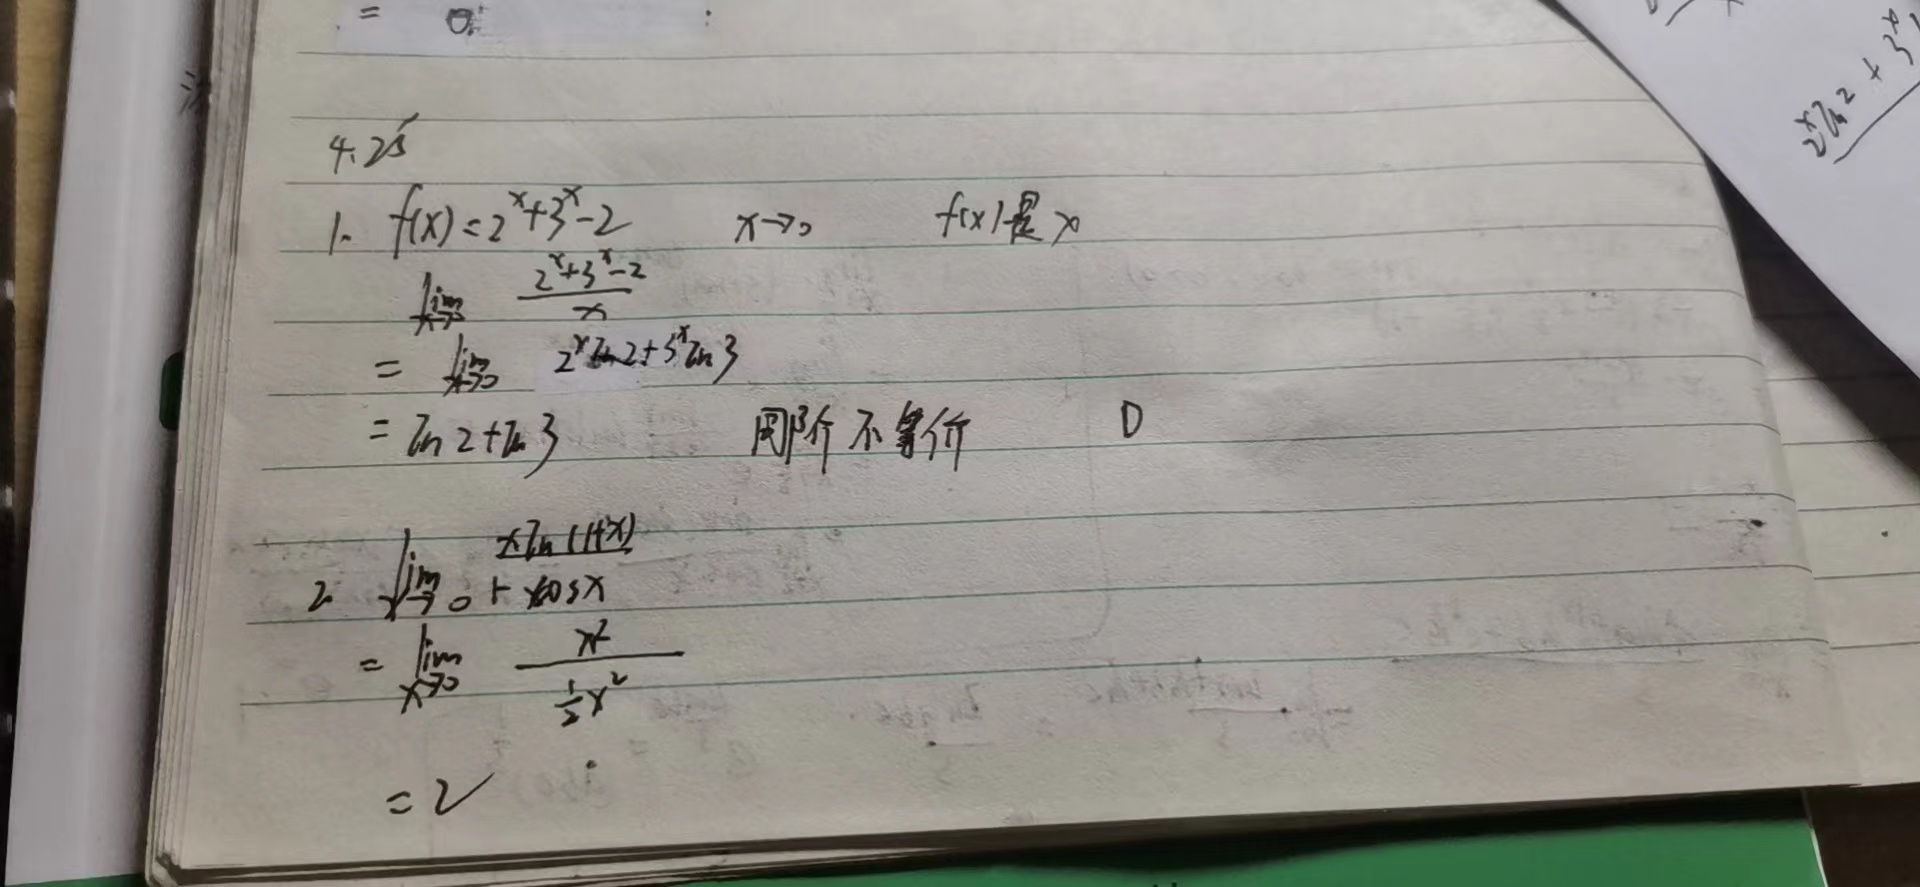 = 0
4.25
1. f(x)=2^x+3^x-2 x→0 f(x)是x
lim x→0 (2^x+3^x-2)/x
= lim x→0 2^x ln2+3^x ln3
= ln2+ln3 同阶不等价 D
2. lim x→0 xln(1+x)/(1-cosx)
= lim x→0 x²/(½x²)
= 2
2^x ln2 + 3^x